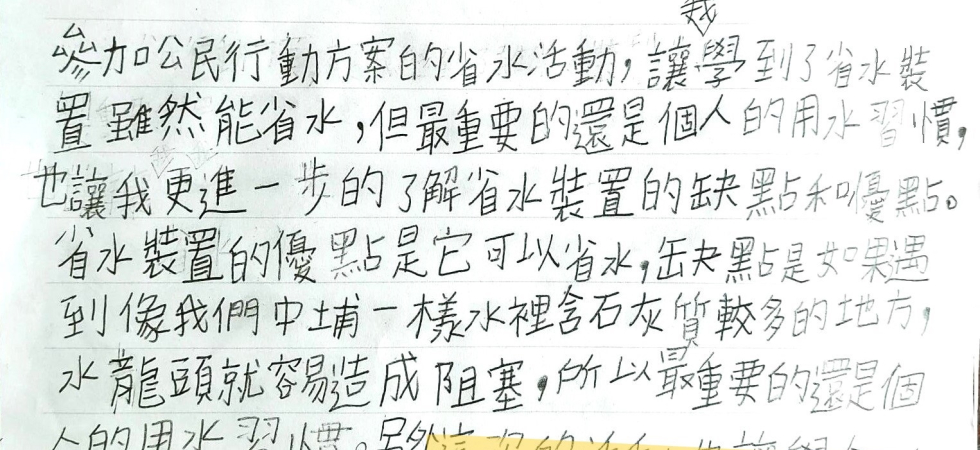 參加公民行動方案的省水活動，讓我學到了省水裝
置雖然能省水，但最重要的還是個人的用水習慣，
也讓我更進一步的了解省水裝置的缺點和優點。
省水裝置的優點是它可以省水，缺點是如果遇
到像我們中埔一樣水裡含石灰質較多的地方，
水龍頭就容易造成阻塞，所以最重要的還是個
人的用水習慣。